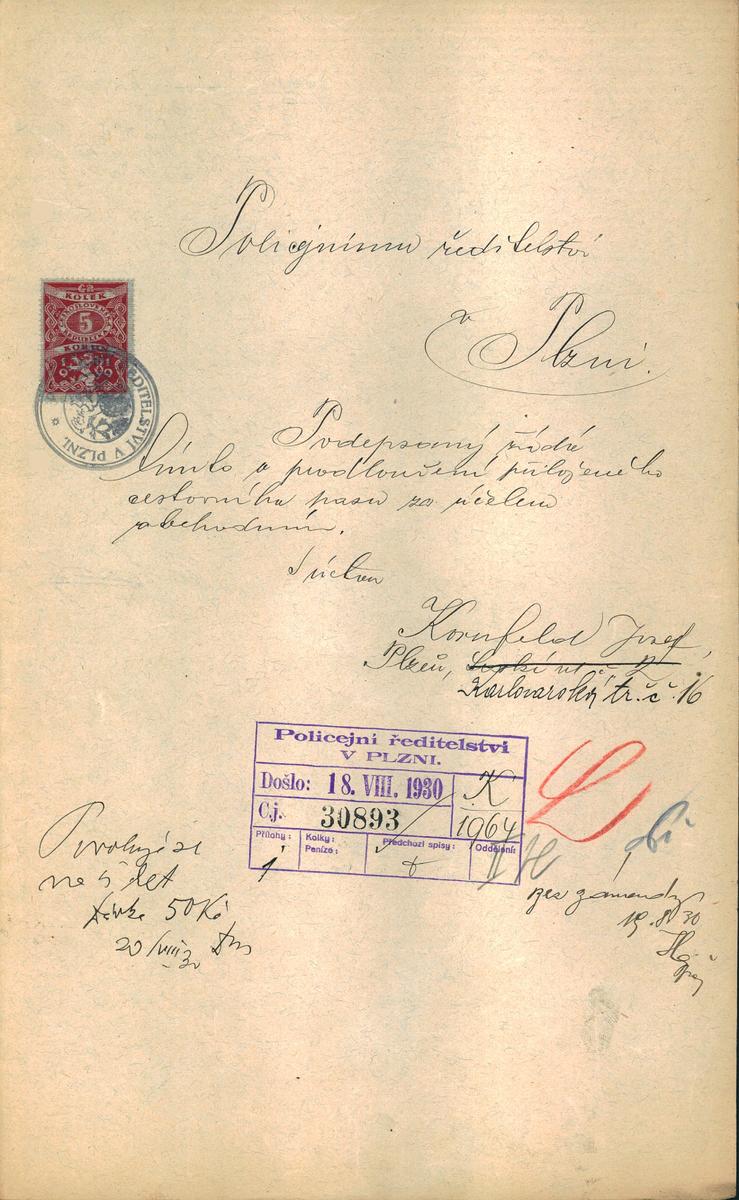 Policejnímu ředitelství
v Plzni.
KOLEK
5
ŘEDITELSTVÍ V PLZNI.
Podepsaný žádá
tímto o prodloužení přiloženého
cestovního pasu za účelem
obchodním.
S úctou
Kornfeld Josef,
Plzeň,
Karlovarská tř. č. 16
Policejní ředitelství
V PLZNI.
Došlo: 18. VIII. 1930
K
C.j. 30893
1964
Přílohy: 1
Kolky:
Peníze:
Předchozí spisy:
Oddělení:
Povoluje se
na 5 let
50 Kč
20/VIII 30
bez závady
19.8.30